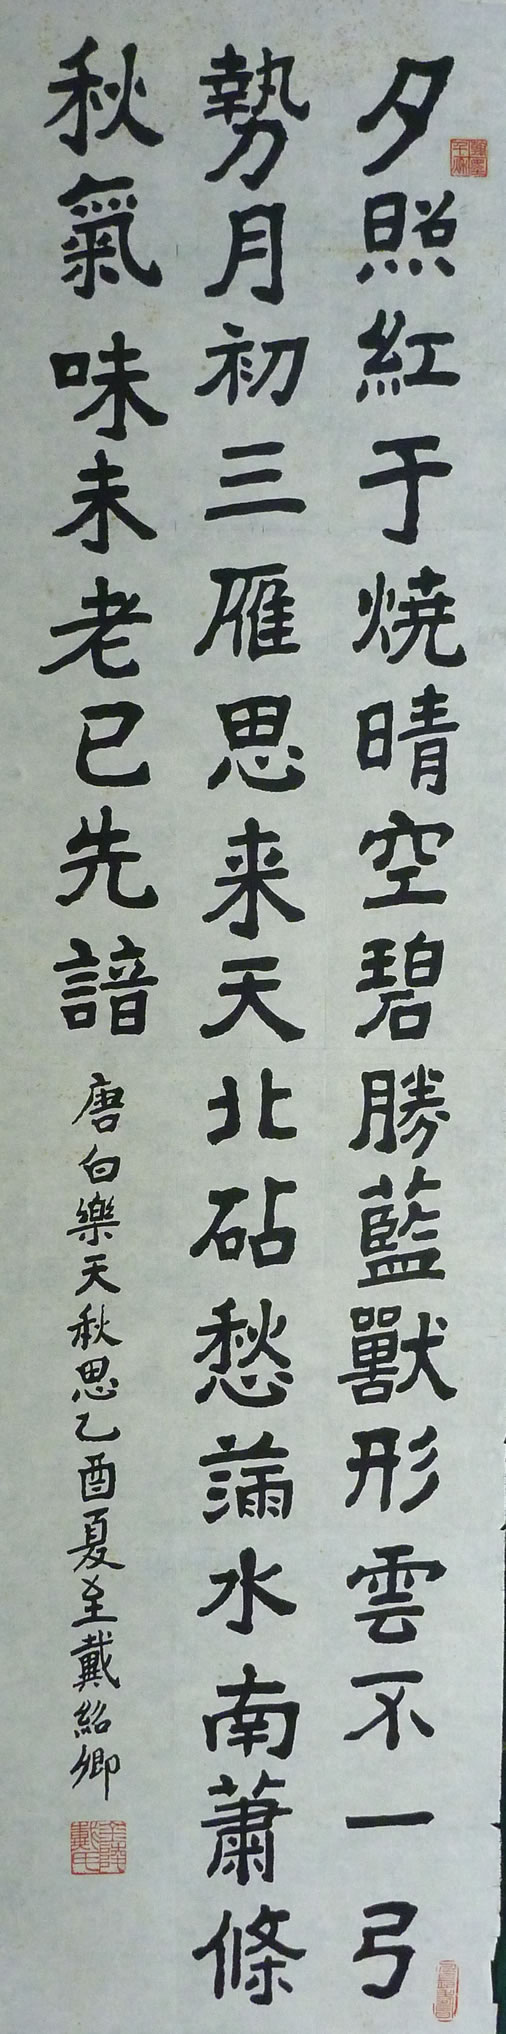 夕照紅于燒晴空碧勝藍獸形雲不一弓
勢月初三雁思来天北砧愁滿水南蕭條
秋氣味未老已先諳
唐白樂天秋思乙酉夏至戴紹卿